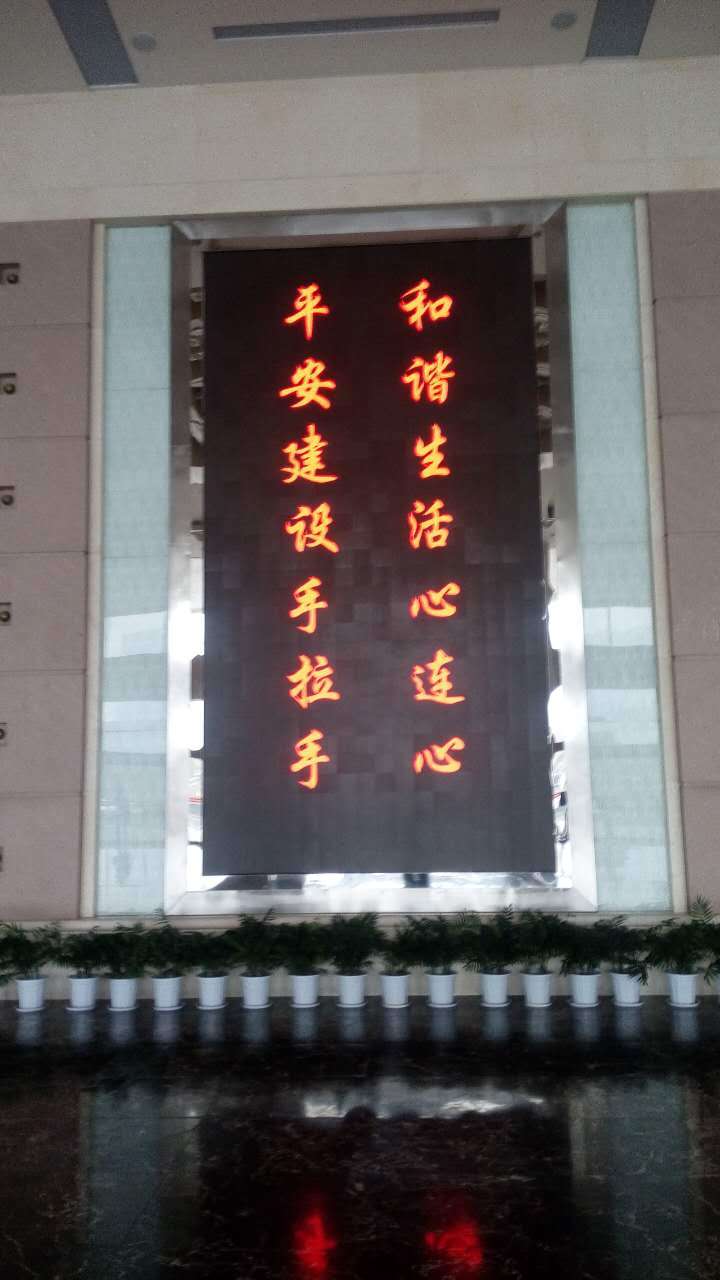 平安建设手拉手
和谐生活心连心